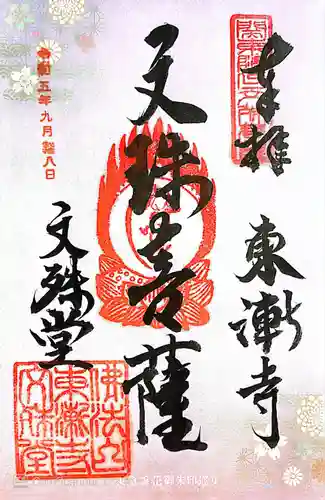 奉拝
東漸寺
文殊菩薩
文殊堂
令和五年九月廿八日
佛法山
東漸寺
文殊堂